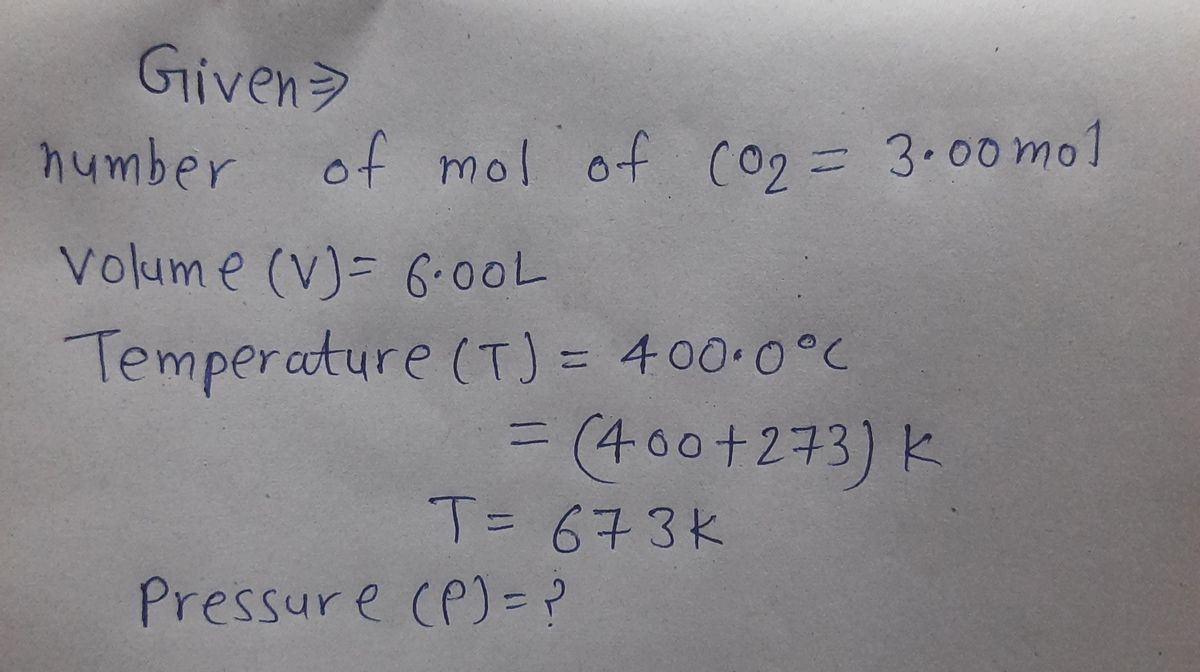 Given⇒
number of mol of CO2 = 3.00 mol
Volume (V)= 6.00L
Temperature (T) = 400.0°C
= (400+273) K
T= 673K
Pressure (P)=?